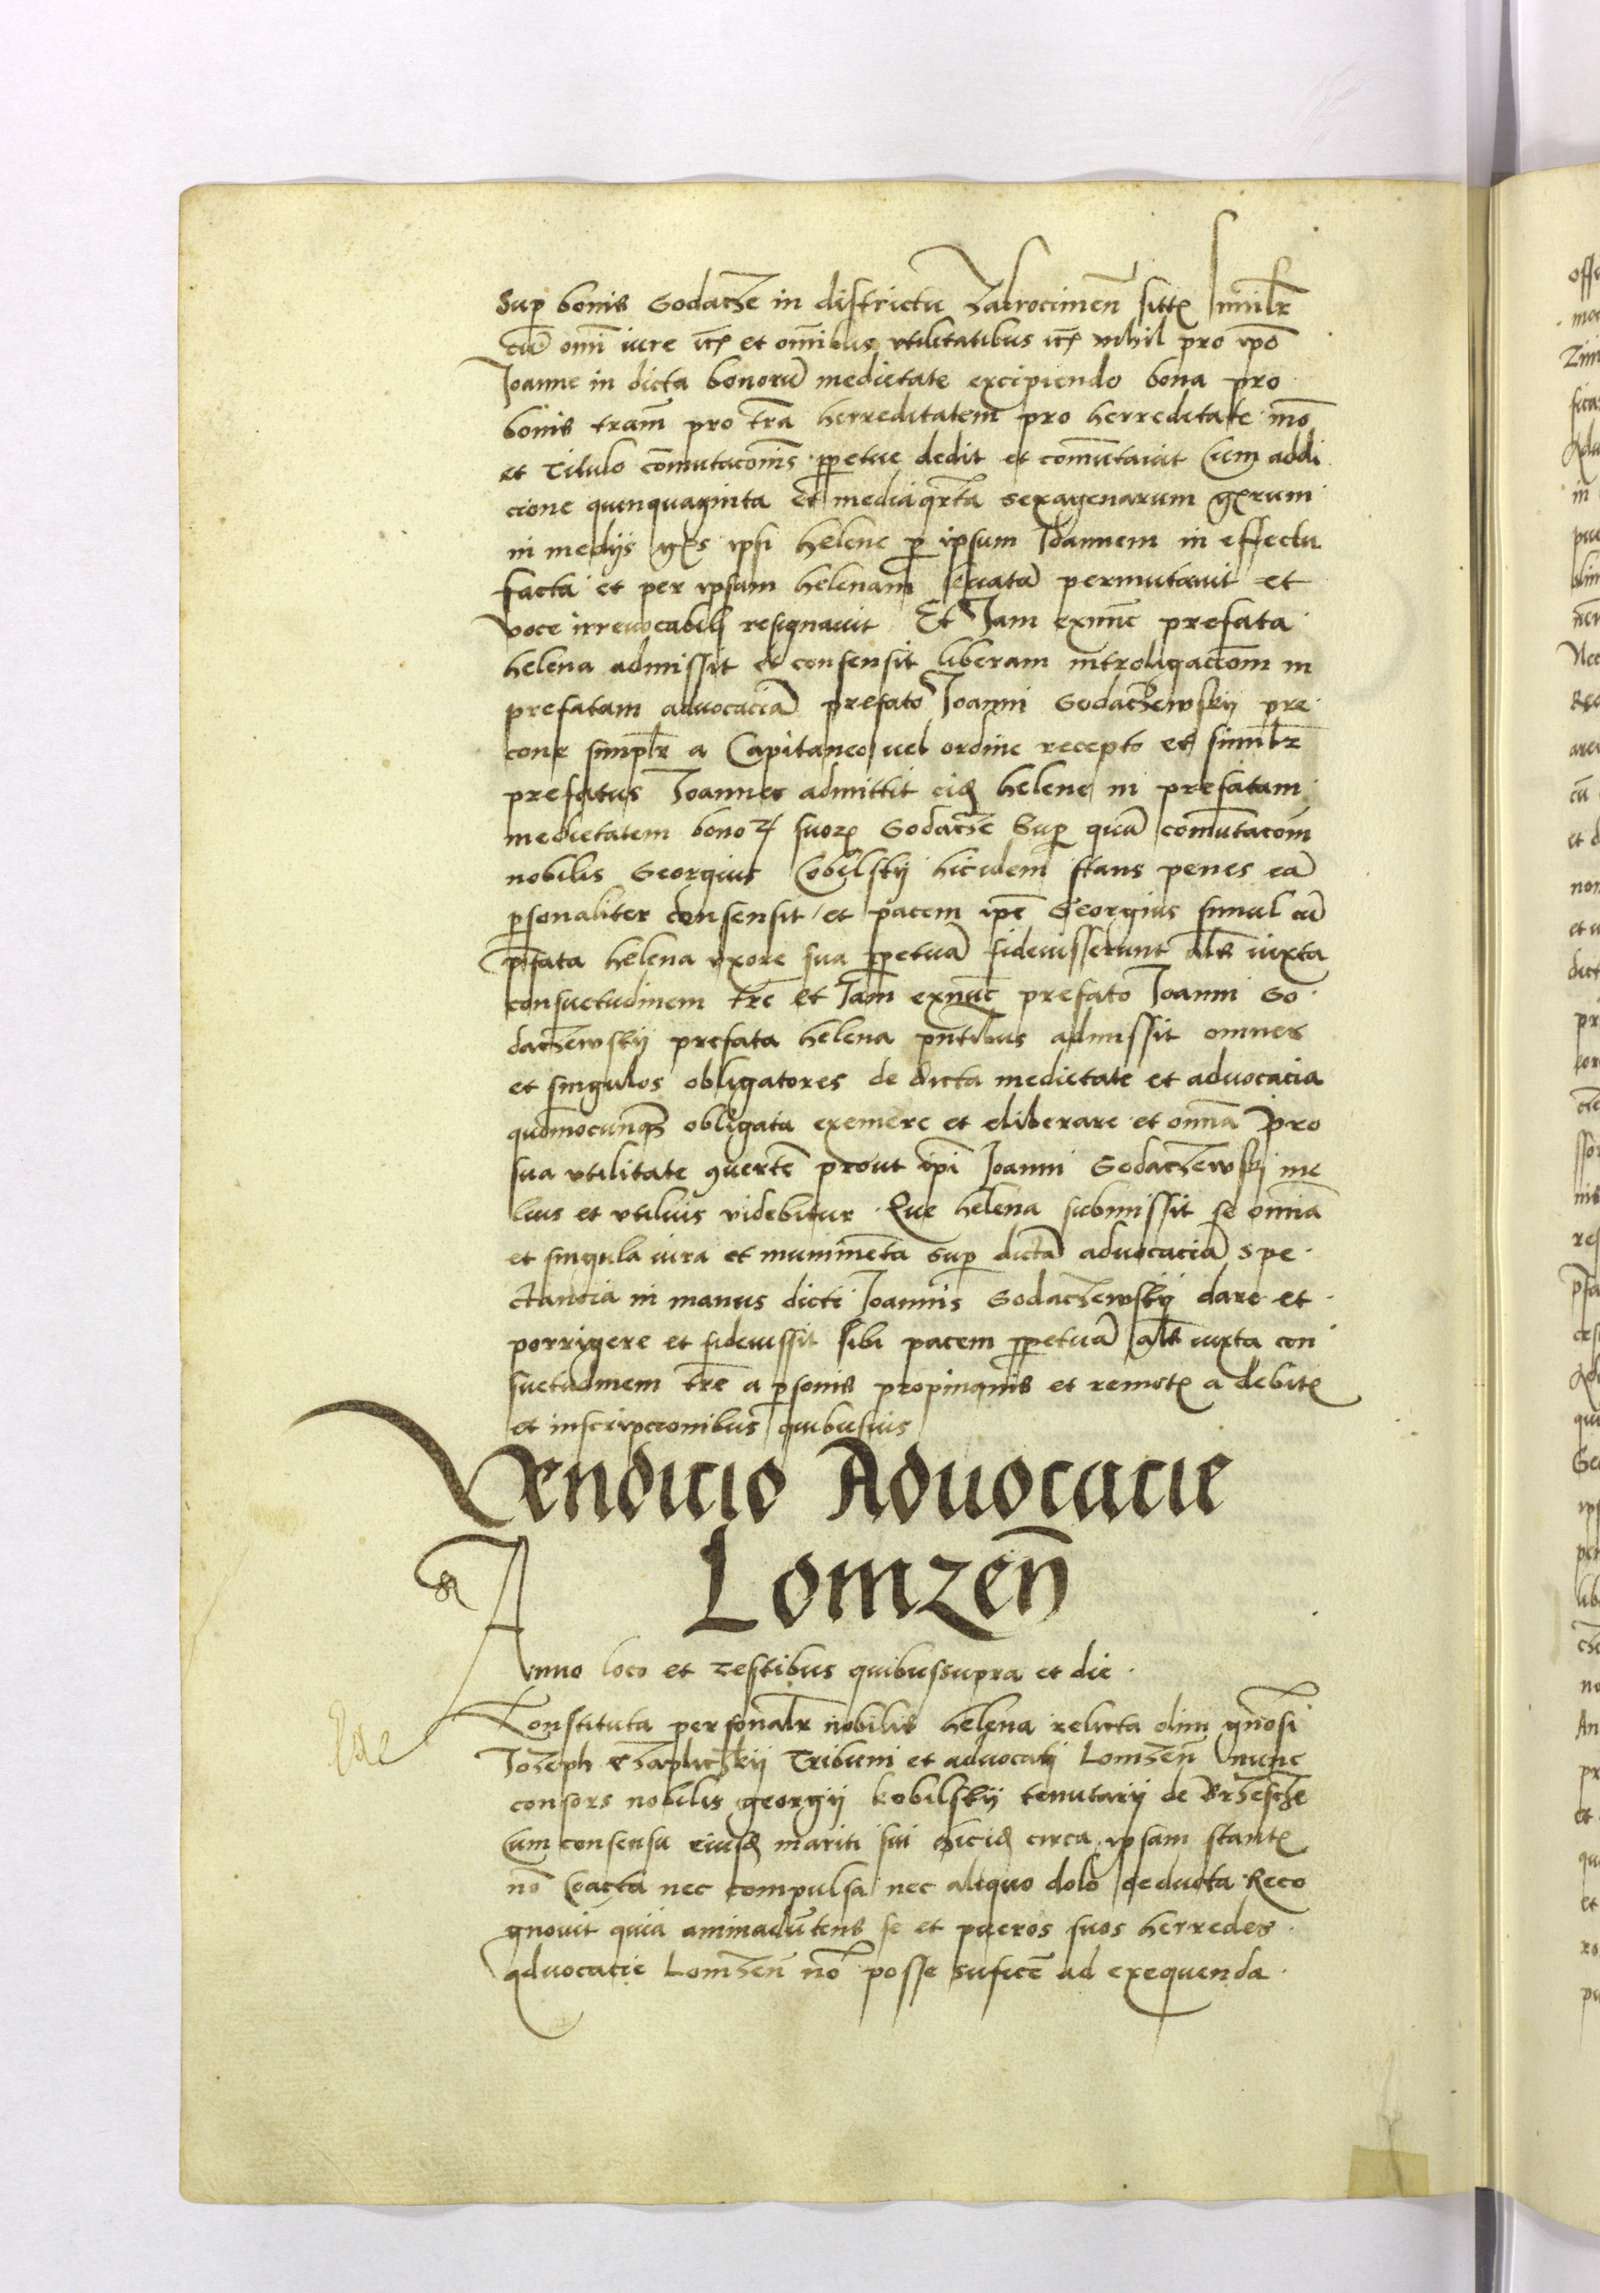 Sup bonis Godache in districtu Zacrocimen̄ sittꝭ similr̄
cū om̄i iure itꝭ et om̄ibus vtilitatibus itꝭ nihil pro ip̄o
Joanne in dicta bonorū medietate excipiendo bona pro
bonis tr̄am pro tr̄a herreditatem pro herreditate mō
et Titulo com̄utacōnis ꝑpetue dedit et com̄utauit Cum addi
cione qunquaginta et media qr̄ta sexagenarum gꝛorum
in medijs gꝛs ipsi helene ꝑ ipsum Joannem in effectu
facta et per ipsam helenam leuatā permutauit et
voce irreuocabili resignauit Et Jam exnūc prefata
helena admissit et consensit liberam introligacōm in
prefatam aduocaciā prefato Joanni Godachewskij pre
cone simplr̄ a Capitaneo uel ordine recepto et similr̄
prefatus Joannes admittit eidꝫ helene in prefatam
medietatem bonoꝝ suorꝫ Godache Sup quā com̄utacōm
nobilis Georgius Cobilskij hicidem stans penes eā
ꝑsonaliter consensit et pacem ip̄e Georgius simul cū
p̄fata helena vxore sua ꝑpetuā fideiusserunt al̄s iuxta
consuetudinem tr̄e et Jam exnūc prefato Joanni Go
dachewskij prefata helena pn̄tibus admissit omnes
et singulos obligatores de dicta medietate et aduocacia
quomocunqꝫ obligata exemere et eliberare et om̄ia pro
sua vtilitate ꝯuertē prout ip̄i Joanni Godachewskij me
lius et vtilius videbitur Que helena submissit se om̄ia
et singula iura et munimēta sup dictā aduocaciā spe
ctancia in manus dicti Joannis Godachewskij dare et
porrigere et fideiussit sibi pacem ꝑpetuā al̄s iuxta con
suetudinem tr̄e a ꝑsonis propinquis et remotꝭ a debitꝭ
et inscripcionibus quibusuis
Vendicio Aduocacie
Lomzen̄
Anno loco et Testibus quibussupra et die
Constituta personalr̄ nobilis helena relicta olim gn̄osi
Jozeph Chaplickij Tribuni et aduocati Lomzen̄ nunc
consors nobilis georgij kobilskij tenutarij de Brzesche
Cum consensu eiusdꝫ mariti sui hicidꝫ circa ipsam stantꝭ
nō Coacta nec compulsa nec aliquo dolo seducta Reco
gnouit quia animaduertens se et pueros suos herredes
aduocacie Lomzen̄ nō posse suficē ad exequenda